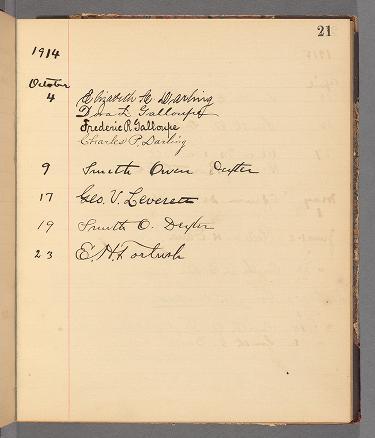 21
1914
October
4 Elizabeth H. Darling
Dora L. Galloupe
Frederic R. Galloupe
Charles P. Darling
9 Smith Owen Dexter
17 Geo. V. Leverett
19 Smith O. Dexter
23 E. H.